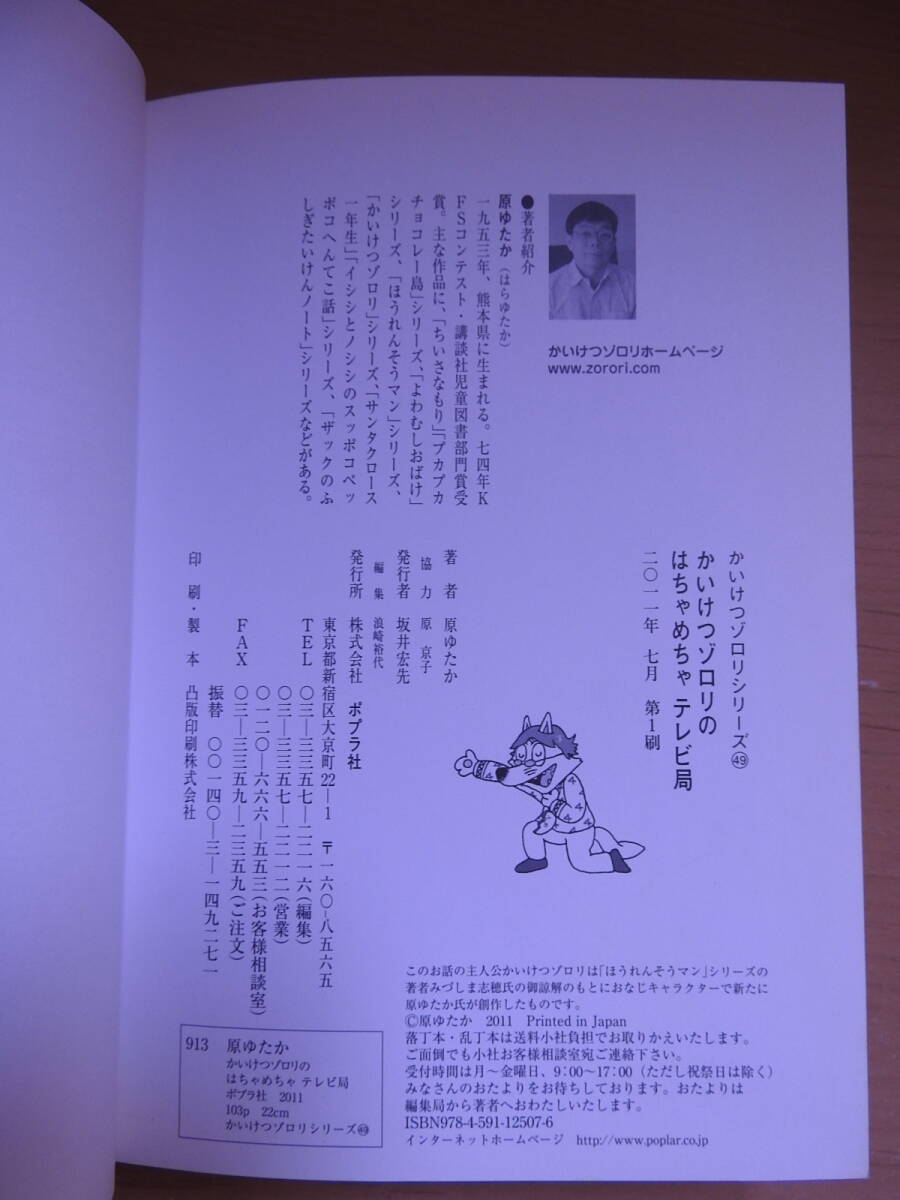 かいけつゾロリホームページ
www.zorori.com
●著者紹介
原ゆたか（はらゆたか）
一九五三年、熊本県に生まれる。七四年K
FSコンテスト・講談社児童図書部門賞受
賞。主な作品に、「ちいさなもり」「プカプカ
チョコレー島」シリーズ、「よわむしおばけ」
シリーズ、「ほうれんそうマン」シリーズ、
「かいけつゾロリ」シリーズ、「サンタクロース
一年生」「イシシとノシシのスッポコペッ
ポコへんてこ話」シリーズ、「ザックのふ
しぎたいけんノート」シリーズなどがある。
かいけつゾロリシリーズ㊾
かいけつゾロリの
はちゃめちゃ テレビ局
二〇一一年 七月 第1刷
著 者 原ゆたか
協 力 原 京子
発行者 坂井宏先
編 集 浪崎裕代
発行所 株式会社 ポプラ社
東京都新宿区大京町22―1 〒一六〇-八五六五
TEL 〇三―三三五七―二二一六（編集）
〇三―三三五七―二二一二（営業）
〇一二〇―六六六―五五三（お客様相談室）
FAX 〇三―三三五九―二三五九（ご注文）
振替 〇〇一四〇―三―一四九二七一
印刷・製本 凸版印刷株式会社
このお話の主人公かいけつゾロリは「ほうれんそうマン」シリーズの
著者みづしま志穂氏の御諒解のもとにおなじキャラクターで新たに
原ゆたか氏が創作したものです。
©原ゆたか 2011 Printed in Japan
落丁本・乱丁本は送料小社負担でお取りかえいたします。
ご面倒でも小社お客様相談室宛ご連絡下さい。
受付時間は月～金曜日、9：00～17：00（ただし祝祭日は除く）
みなさんのおたよりをお待ちしております。おたよりは
編集局から著者へおわたしいたします。
ISBN978-4-591-12507-6
インターネットホームページ http://www.poplar.co.jp
913 原ゆたか
かいけつゾロリの
はちゃめちゃ テレビ局
ポプラ社 2011
103p 22cm
かいけつゾロリシリーズ㊾